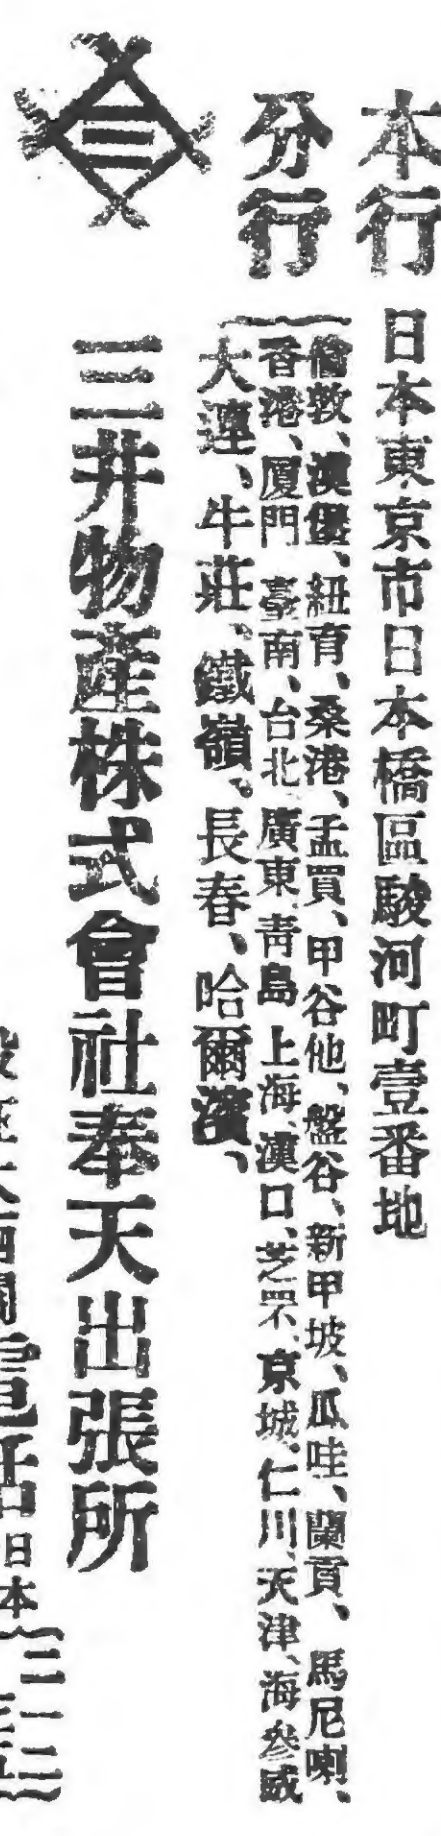 本行 日本東京市日本橋區駿河町壹番地
分行
倫敦、漢堡、紐育、桑港、孟買、甲谷他、盤谷、新甲坡、瓜哇、蘭貢、馬尼喇、
香港、厦門 臺南、台北 廣東 青島 上海、漢口、芝罘、京城、仁川、天津、海參威
大連、牛莊、鐵嶺、長春、哈爾濱、
三井物產株式會社奉天出張所
電話 日本